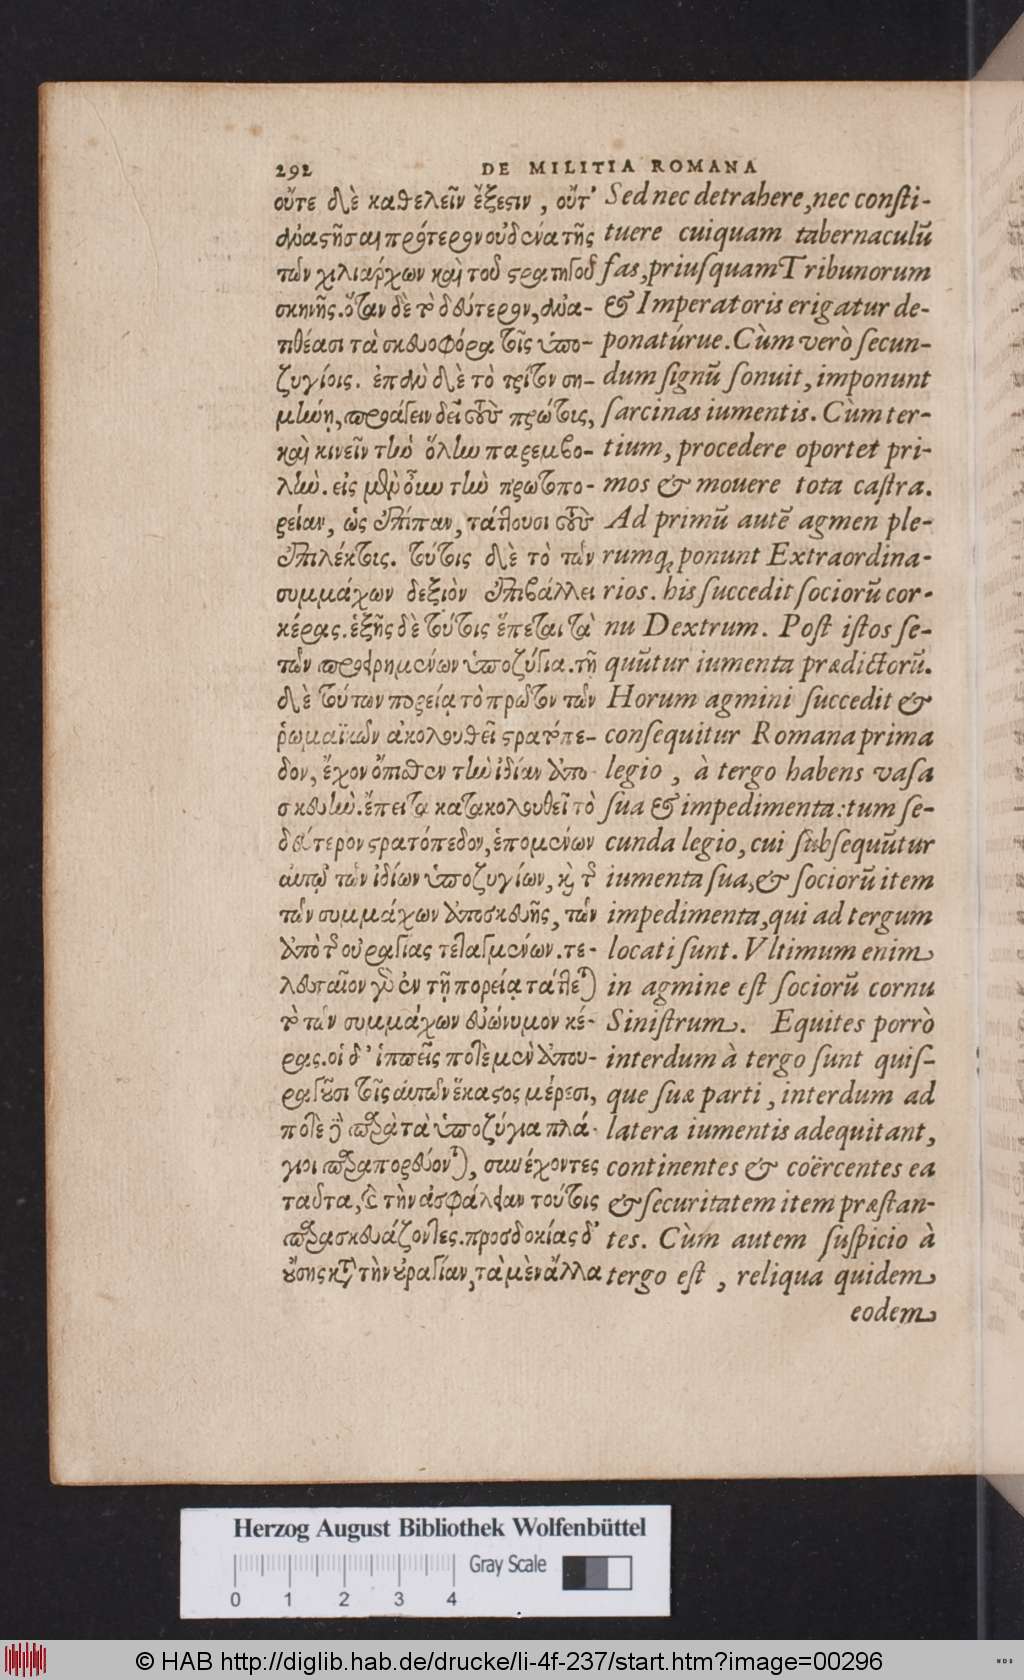 292 DE MILITIA ROMANA
οὔτε δὲ καθελεῖν ἔξεςιν, οὔτ᾽
ἀναςῆσαι πρότερον οὐδένα τῆς
τῶν χιλιάρχων καὶ τοῦ ςρατηγοῦ
σκηνῆς. ὅταν δὲ τὸ δεύτερον, ἀνα-
τιθέασι τὰ σκευοφόρα τοῖς ὑπο-
ζυγίοις. ἐπὰν δὲ τὸ τρίτον ση-
μήνῃ, προάγειν δεῖ τοὺς πρώτους,
καὶ κινεῖν τὴν ὅλην παρεμβο-
λήν. εἰς μὲν οὖν τὴν πρωτοπο-
ρείαν, ὡς ἐπίπαν, τάττουσι τοὺς
ἐπιλέκτους. τούτοις δὲ τὸ τῶν
συμμάχων δεξιὸν ἐπιβάλλει
κέρας. ἑξῆς δὲ τούτοις ἕπεται τὰ
τῶν προειρημένων ὑποζύγια. τῇ
δὲ τούτων πορείᾳ τὸ πρῶτον τῶν
ῥωμαϊκῶν ἀκολουθεῖ ςρατόπε-
δον, ἔχον ὄπισθεν τὴν ἰδίαν ἀπο-
σκευήν. ἔπειτα κατακολουθεῖ τὸ
δεύτερον ςρατόπεδον, ἑπομένων
αὐτῷ τῶν ἰδίων ὑποζυγίων, καὶ τῆς
τῶν συμμάχων ἀποσκευῆς, τῶν
ἀπὸ τῆς οὐραγίας τεταγμένων. τε-
λευταῖον γὸ ἐν τῇ πορείᾳ τάττεται
τὸ τῶν συμμάχων εὐώνυμον κέ-
ρας. οἱ δ᾽ ἱππεῖς ποτὲ μὲν ἀπου-
ραγοῦσι τοῖς αὑτῶν ἕκαςος μέρεσι,
ποτὲ δὲ παρὰ τὰ ὑποζύγια πλά-
γιοι παραπορεύονται, συνέχοντες
ταῦτα, καὶ τὴν ἀσφάλειαν τούτοις
παρασκευάζοντες. προσδοκίας δ᾽
οὔσης κατὰ τὴν οὐραγίαν, τὰ μὲν ἄλλα
Sed nec detrahere, nec consti-
tuere cuiquam tabernaculũ
fas, priusquam Tribunorum
& Imperatoris erigatur de-
ponatúrue. Cùm verò secun-
dum signũ sonuit, imponunt
sarcinas iumentis. Cùm ter-
tium, procedere oportet pri-
mos & mouere tota castra.
Ad primũ autẽ agmen ple-
rumq; ponunt Extraordina-
rios. his succedit sociorũ cor-
nu Dextrum. Post istos se-
quũtur iumenta prædictorũ.
Horum agmini succedit &
consequitur Romana prima
legio, à tergo habens vasa
sua & impedimenta: tum se-
cunda legio, cui subsequũtur
iumenta sua, & sociorũ item
impedimenta, qui ad tergum
locati sunt. Vltimum enim
in agmine est sociorũ cornu
Sinistrum. Equites porrò
interdum à tergo sunt quis-
que suæ parti, interdum ad
latera iumentis adequitant,
continentes & coërcentes ea
& securitatem item præstan-
tes. Cùm autem suspicio à
tergo est, reliqua quidem
eodem
Herzog August Bibliothek Wolfenbüttel
Gray Scale
0 1 2 3 4
© HAB http://diglib.hab.de/drucke/li-4f-237/start.htm?image=00296